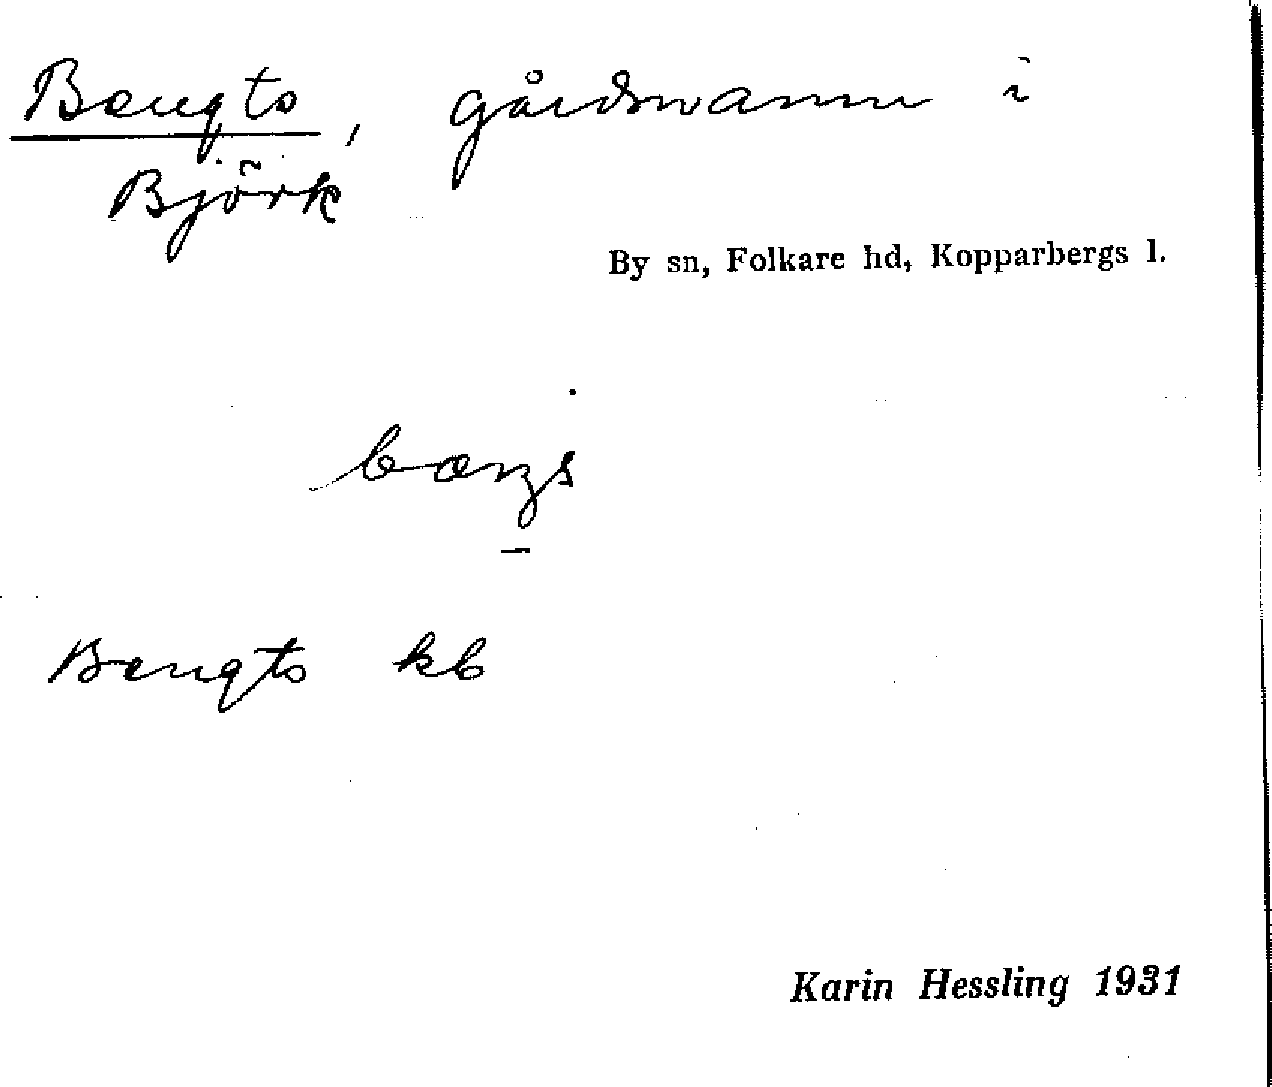 Bengts, gårdsnamn i
Björk
By sn, Folkare hd, Kopparbergs l.
Bengts kb
Karin Hessling 1931